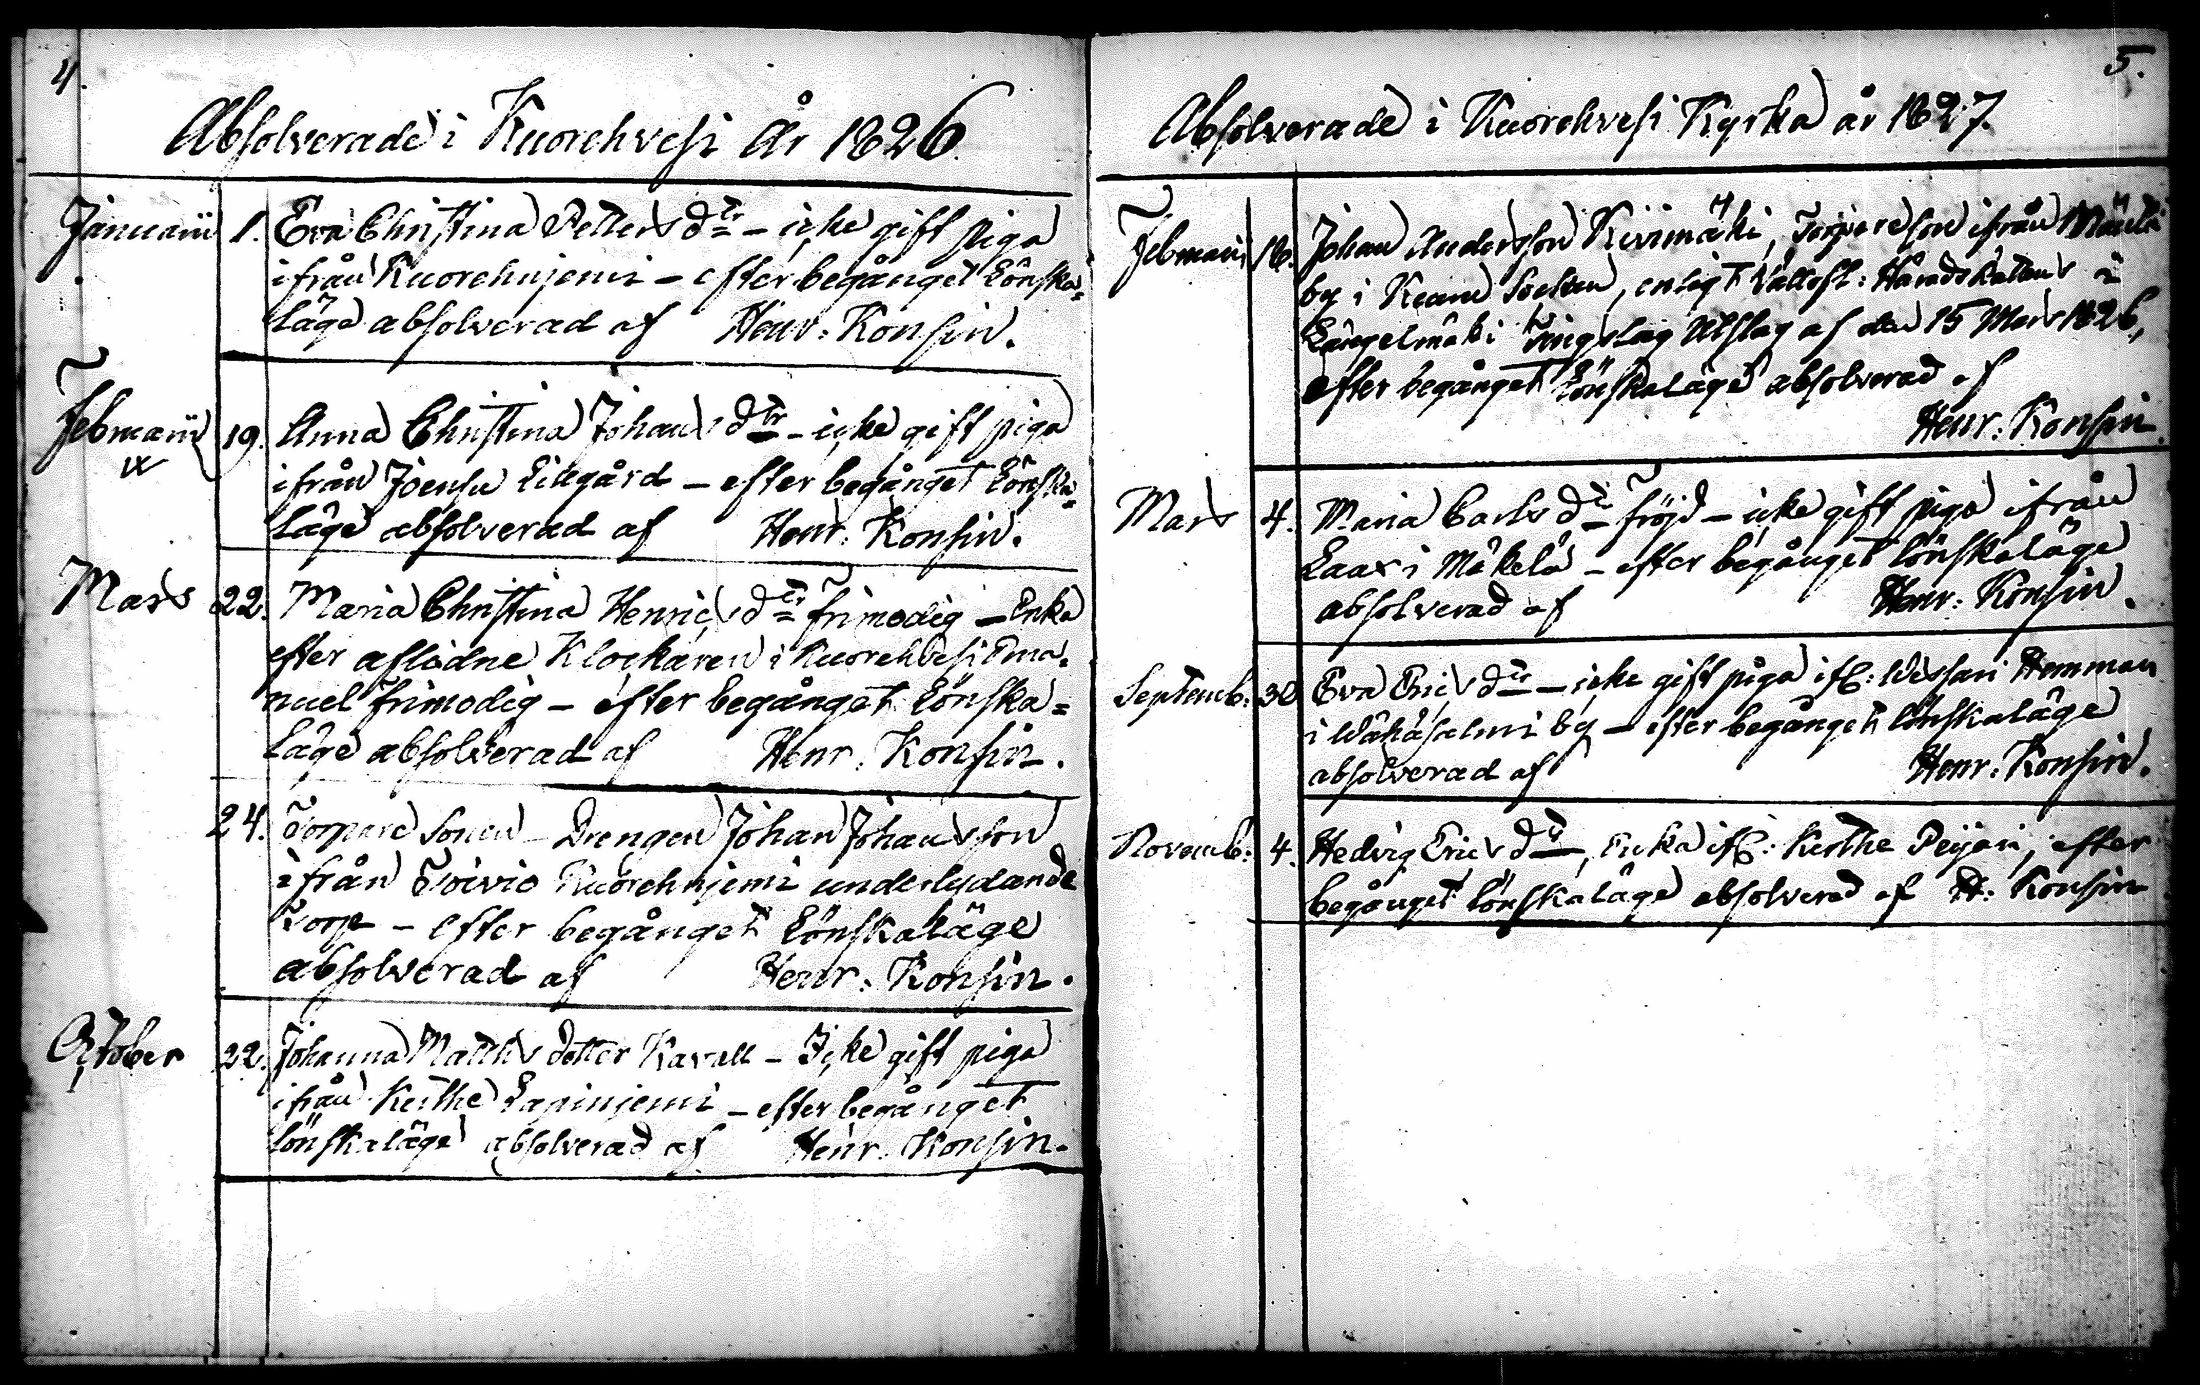 4.
Absolverade i Kuorehvesi År 1826.
Januarii 1. Eva Christina Petters dr – icke gift piga
ifrån Kuorehnjemi – efter begånget Lönska=
läge absolverad af Henr: Konsin.
Februarii 19. Anna Christina Johans dr – icke gift piga
ifrån Joensu Lillgård – efter begånget Lönska=
läge absolverad af Henr: Konsin.
Mars 22. Maria Christina Henrics dr Frimodig – Enka
efter aflidne Klockaren i Kuorehvesi Ema=
nuel Frimodig – efter begånget Lönska=
läge absolverad af Henr. Konsin.
24. Torpare Sonen – Drengen Johan Johansson
ifrån Toivio Kuorehnjemi underlydande
Torp – efter begånget Lönskaläge
absolverad af Henr. Konsin.
October 22. Johanna Matths dotter Kavall – Icke gift piga
ifrån Keithe Lapinjemi – efter begånget
lönskaläge absolverad af Henr. Konsin.
5.
Absolverade i Kuorehvesi Kyrka år 1827.
Februarii 18. Johan Andersson Kivimäki, Torpareson ifrån
by i Socken, enligt Vällofl: Härads Rättens i
Längelmäki Tingslag Utslag af den 15 Mars 1826,
efter begånget Lönskaläge absolverad af
Henr: Konsin
Mars 4. Maria Carls dr Fröjd – icke gift piga ifrån
Laax i Mäkelä – efter begånget lönskaläge
absolverad af Henr: Konsin.
Septemb: 30 Eva Erics dr – icke gift piga ifr: Wessari Hemman
i Wähäsalmi by – efter begånget lönskaläge
absolverad af Henr: Konsin.
Novemb: 4. Hedvig Erics dr, Enka ifr: Keithe Peijari, efter
begånget lönskaläge absolverad af H: Konsin